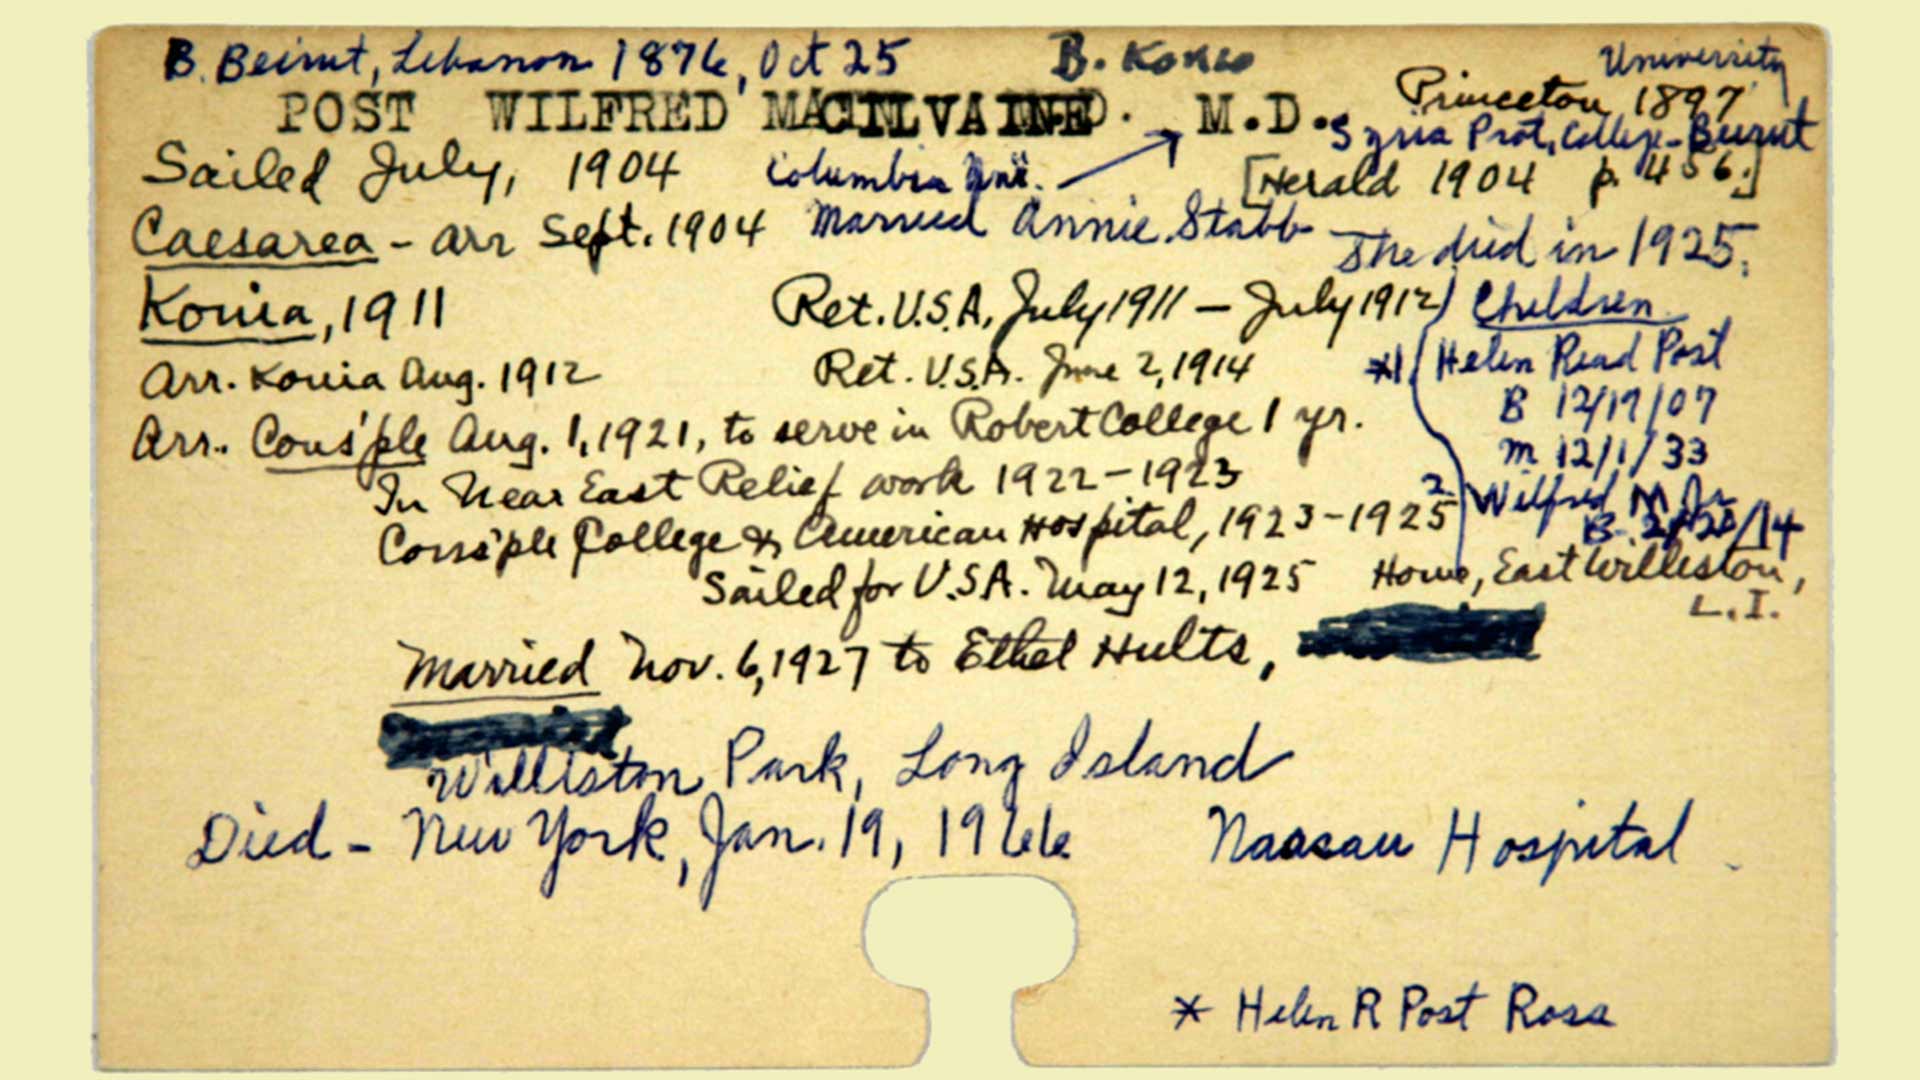 B. Beirut, Lebanon 1876, Oct 25 B.
University
POST WILFRED MACILVAINE M.D. Princeton 1897
Syria Prot. College - Beirut
Sailed July, 1904 Columbia [Herald 1904 p. 456.]
Caesarea - arr Sept. 1904 Married Annie Stabb She died in 1925.
Konia, 1911 Ret. U.S.A. July 1911 - July 1912 Children
Arr. Konia Aug. 1912 Ret. U.S.A. June 2, 1914 *1 Helen Read Post
B 12/19/07
Arr. Cons'ple Aug. 1, 1921, to serve in Robert College 1 yr.
m 12/1/33
In Near East Relief work 1922-1923
2 Wilfred M Jr
Cons'ple College & American Hospital, 1923-1925 B.
Sailed for U.S.A. May 12, 1925 Home, East Williston,
L.I.
Married Nov. 6, 1927 to Ethel Hults,
Williston Park, Long Island
Died - New York, Jan. 19, 1966 Nassau Hospital
* Helen R Post Rosa